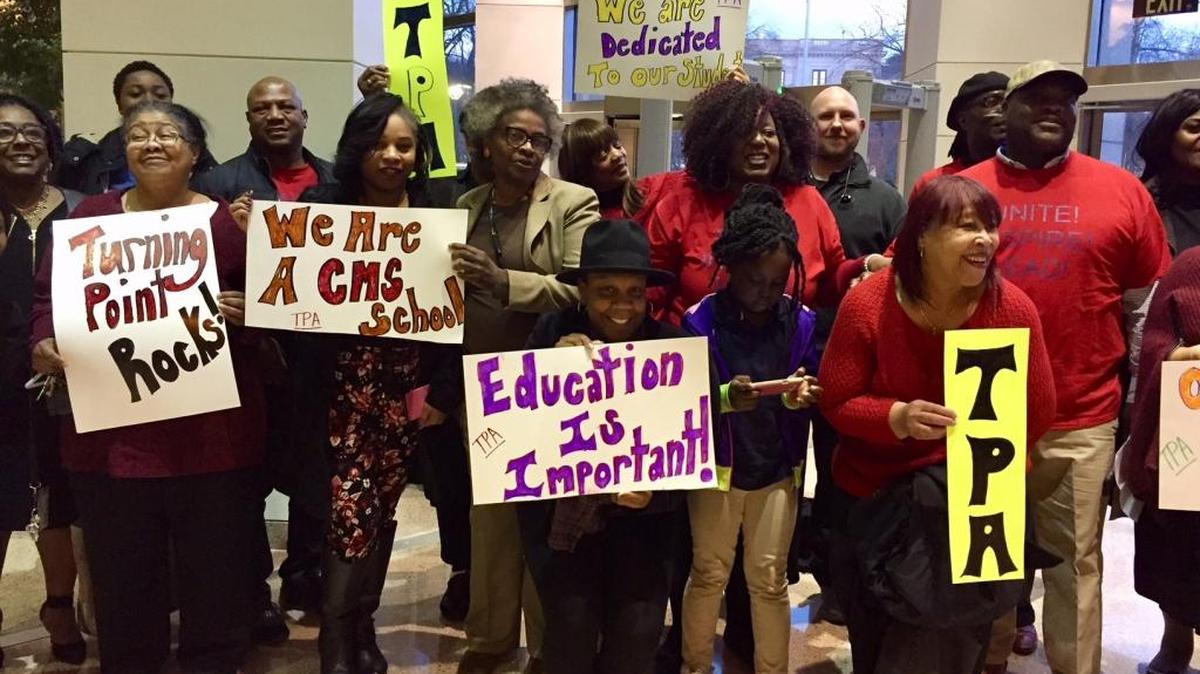 We are TPA
Dedicated
To our Student
EXIT
TPA
Turning
Point
Rocks!
We Are
A CMS
school
TPA
Education
Is
Important!
TPA
UNITE!
TPA
TPA